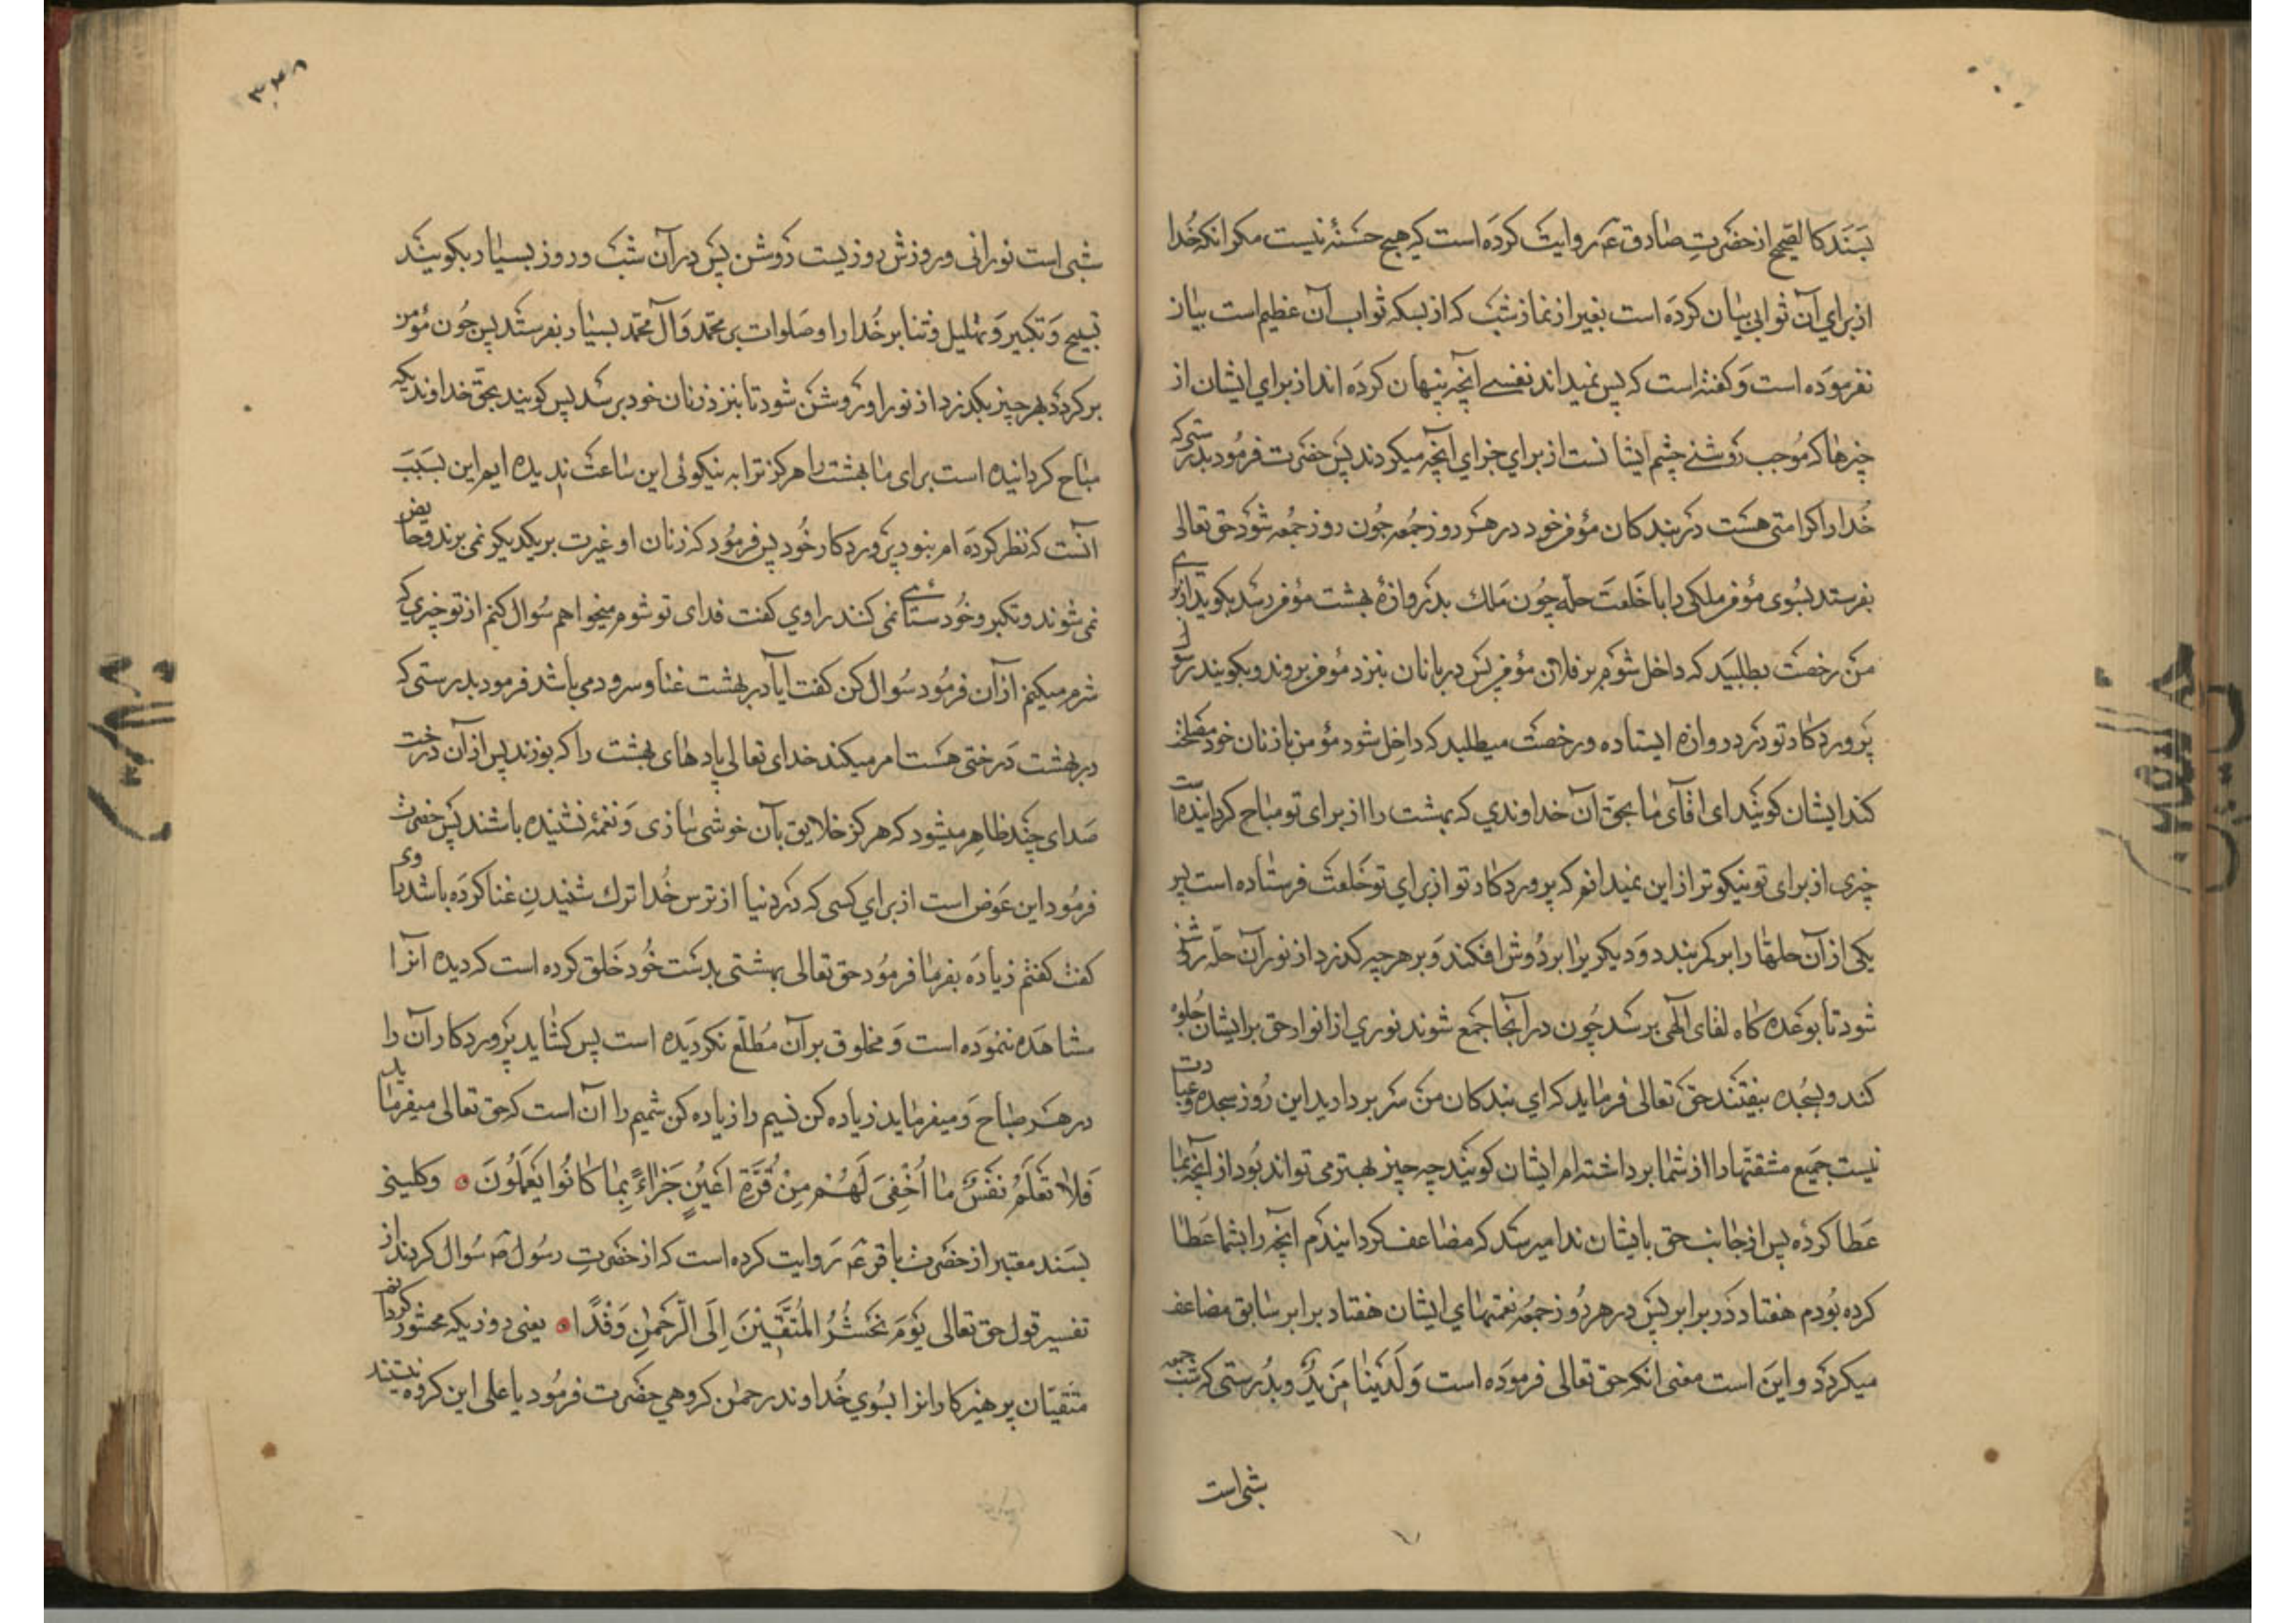 بسند کالصحیح از حضرت صادق ع م روایت کرده است که هیچ حسنهٔ نیست مکر انکه خدا
از برای آن ثوابی بیان کرده است بغیر از نماز شب که از بسکه ثواب آن عظیم است بیان
نفرموده است و کفته است که پس نمیداند نفسے آنچه پنهان کرده اند از برای ایشان از
چیزها که موجب روشنے چشم ایشانست از برای جزای آنچه میکردند پس حضرت فرمود بدرستی که
خدا را کرامتی هست در بندکان مؤمن خود در هر روز جمعه چون روز جمعه شود حق تعالی
بفرستد بسوی مؤمن ملکی را با خلعت حله چون ملک بدروازهٔ بهشت مؤمن رسد بکوید از برای
من رخصت بطلبید که داخل شوم بر فلان مؤمن پس دربانان بنزد مؤمن بروند و بکویند رسول
پروردکار تو در دروازه ایستاده و رخصت میطلبد که داخل شود مؤمن با زنان خود مصلحت
کند ایشان کویند ای اقای ما بحق آن خداوندی که بهشت را از برای تو مباح کردانیده است
چیزی از برای تو نیکوتر از این نمیدانم که پروردکار تو از برای تو خلعت فرستاده است پس
یکی از آن حلها را بر کمر بندد و دیکریرا بر دوش افکند و بر هر چه کذرد از نور آن حله روشنی
شود تا بوعده کاه لقای آلهی برسد چون در آنجا جمع شوند نوری از انوار حق بر ایشان جلوه
کند و بسجده بیفتند حق تعالی فرماید که ای بندکان من سر بردارید این روز سجده و عبادت
نیست جمیع مشقتها را از شما برداشته ام ایشان کویند چه چیز بهتر می تواند بود از آنچه بما
عطا کرده پس از جانب حق بایشان ندا میرسد که مضاعف کردانیدم انچه را بشما عطا
کرده بودم هفتاد در برابر پس در هر روز جمعه نعمتهای ایشان هفتاد برابر سابق مضاعف
میکردد و این است معنی انکه حق تعالی فرموده است وَلَدَیْنَا مَزِیدٌ و بدرستی که شب جمعه
شبی است
۳۳۸
شبی است نورانی و روزش روزیست روشن پس در آن شب و روز بسیار بکویند
تسبیح و تکبیر و تهلیل و ثنا بر خدا را و صلوات بر محمد و آل محمد بسیار بفرستد پس چون مؤمن
برکردد بهر چیز بکذرد از نور او روشن شود تا بنزد زنان خود برسد پس کویند بحق خداوندیکه
مباح کردانیده است برای ما بهشت را هرکز ترا به نیکوئی این ساعت ندیده ایم این بسبب
آنست که نظر کرده ام بنور پروردکار خود پس فرمود که زنان او غیرت بر یکدیکر نمی برند و حایض
نمی شوند و تکبر و خودستائے نمی کنند راوی کفت فدای تو شوم میخواهم سوال کنم از تو چیزی که
شرم میکنم از آن فرمود سوال کن کفت آیا در بهشت غنا و سرود می باشد فرمود بدرستی که
در بهشت درختی هست امر میکند خدای تعالی بادهای بهشت را که بوزند پس از آن درخت
صدای چند ظاهر میشود که هرکز خلایق بآن خوشی سازی و نغمهٔ نشنیده باشند پس حضرت
فرمود این عوض است از برای کسی که در دنیا از ترس خدا ترک شنیدن غنا کرده باشد راوی
کفت کفتم زیاده بفرما فرمود حق تعالی بهشتی بدست خود خلق کرده است که دیده آنرا
مشاهده ننموده است و مخلوق بر آن مطلع نکردیده است پس کشاید پروردکار آن را
در هر صباح و میفرماید زیاده کن نسیم را زیاده کن شمیم را آن است که حق تعالی میفرماید
فَلَا تَعْلَمُ نَفْسٌ مَا أُخْفِیَ لَهُمْ مِنْ قُرَّةِ أَعْیُنٍ جَزَاءً بِمَا کَانُوا یَعْمَلُونَ و کلینی
بسند معتبر از حضرت باقر ع م روایت کرده است که از حضرت رسول ص سوال کردند از
تفسیر قول حق تعالی یَوْمَ نَحْشُرُ الْمُتَّقِینَ إِلَی الرَّحْمٰنِ وَفْدًا یعنی روزیکه محشور کردانیم
متقیان پرهیزکارانرا بسوی خداوند رحمن کروهی حضرت فرمود یا علی این کروه نیستند